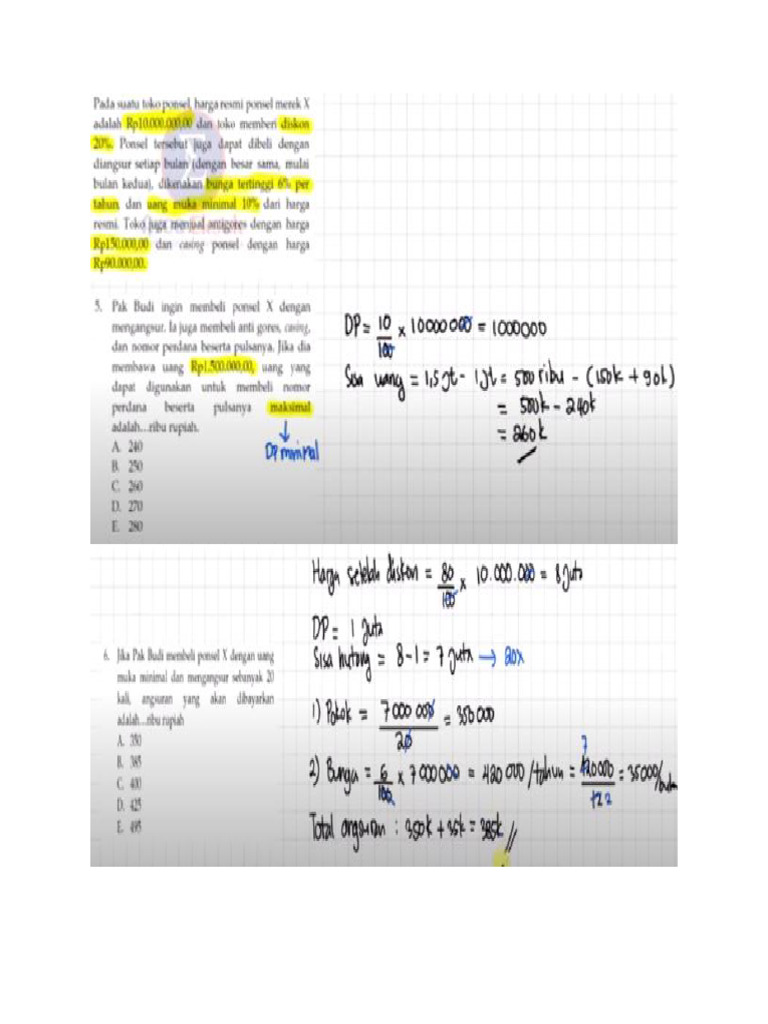 Pada suatu toko ponsel, harga resmi ponsel merek X
adalah Rp10.000.000,00 dan toko memberi diskon
20%. Ponsel tersebut juga dapat dibeli dengan
diangsur setiap bulan (dengan besar sama, mulai
bulan kedua), dikenakan bunga tertinggi 6% per
tahun, dan uang muka minimal 10% dari harga
resmi. Toko juga menjual antigores dengan harga
Rp150.000,00 dan casing ponsel dengan harga
Rp90.000,00.
5. Pak Budi ingin membeli ponsel X dengan
mengangsur. Ia juga membeli anti gores, casing,
dan nomor perdana beserta pulsanya. Jika dia
membawa uang Rp1.500.000,00, uang yang
dapat digunakan untuk membeli nomor
perdana beserta pulsanya maksimal
adalah...ribu rupiah.
DP minimal
A. 240
B. 250
C. 260
D. 270
E. 280
DP = 10/100 x 10000000 = 1000000
Sisa uang = 1,5jt - 1jt = 500 ribu - (150k + 90k)
= 500k - 240k
= 260k
6. Jika Pak Budi membeli ponsel X dengan uang
muka minimal dan mengangsur sebanyak 20
kali, angsuran yang akan dibayarkan
adalah...ribu rupiah
A. 350
B. 385
C. 400
D. 425
E. 495
Harga setelah diskon = 80/100 x 10.000.000 = 8 juta
DP = 1 juta
Sisa hutang = 8 - 1 = 7 juta → 20x
1) Pokok = 7000 000/20 = 350 000
2) Bunga = 6/100 x 7000000 = 420 000/tahun = 420000/12 = 35000/bulan
Total angsuran : 350k + 35k = 385k